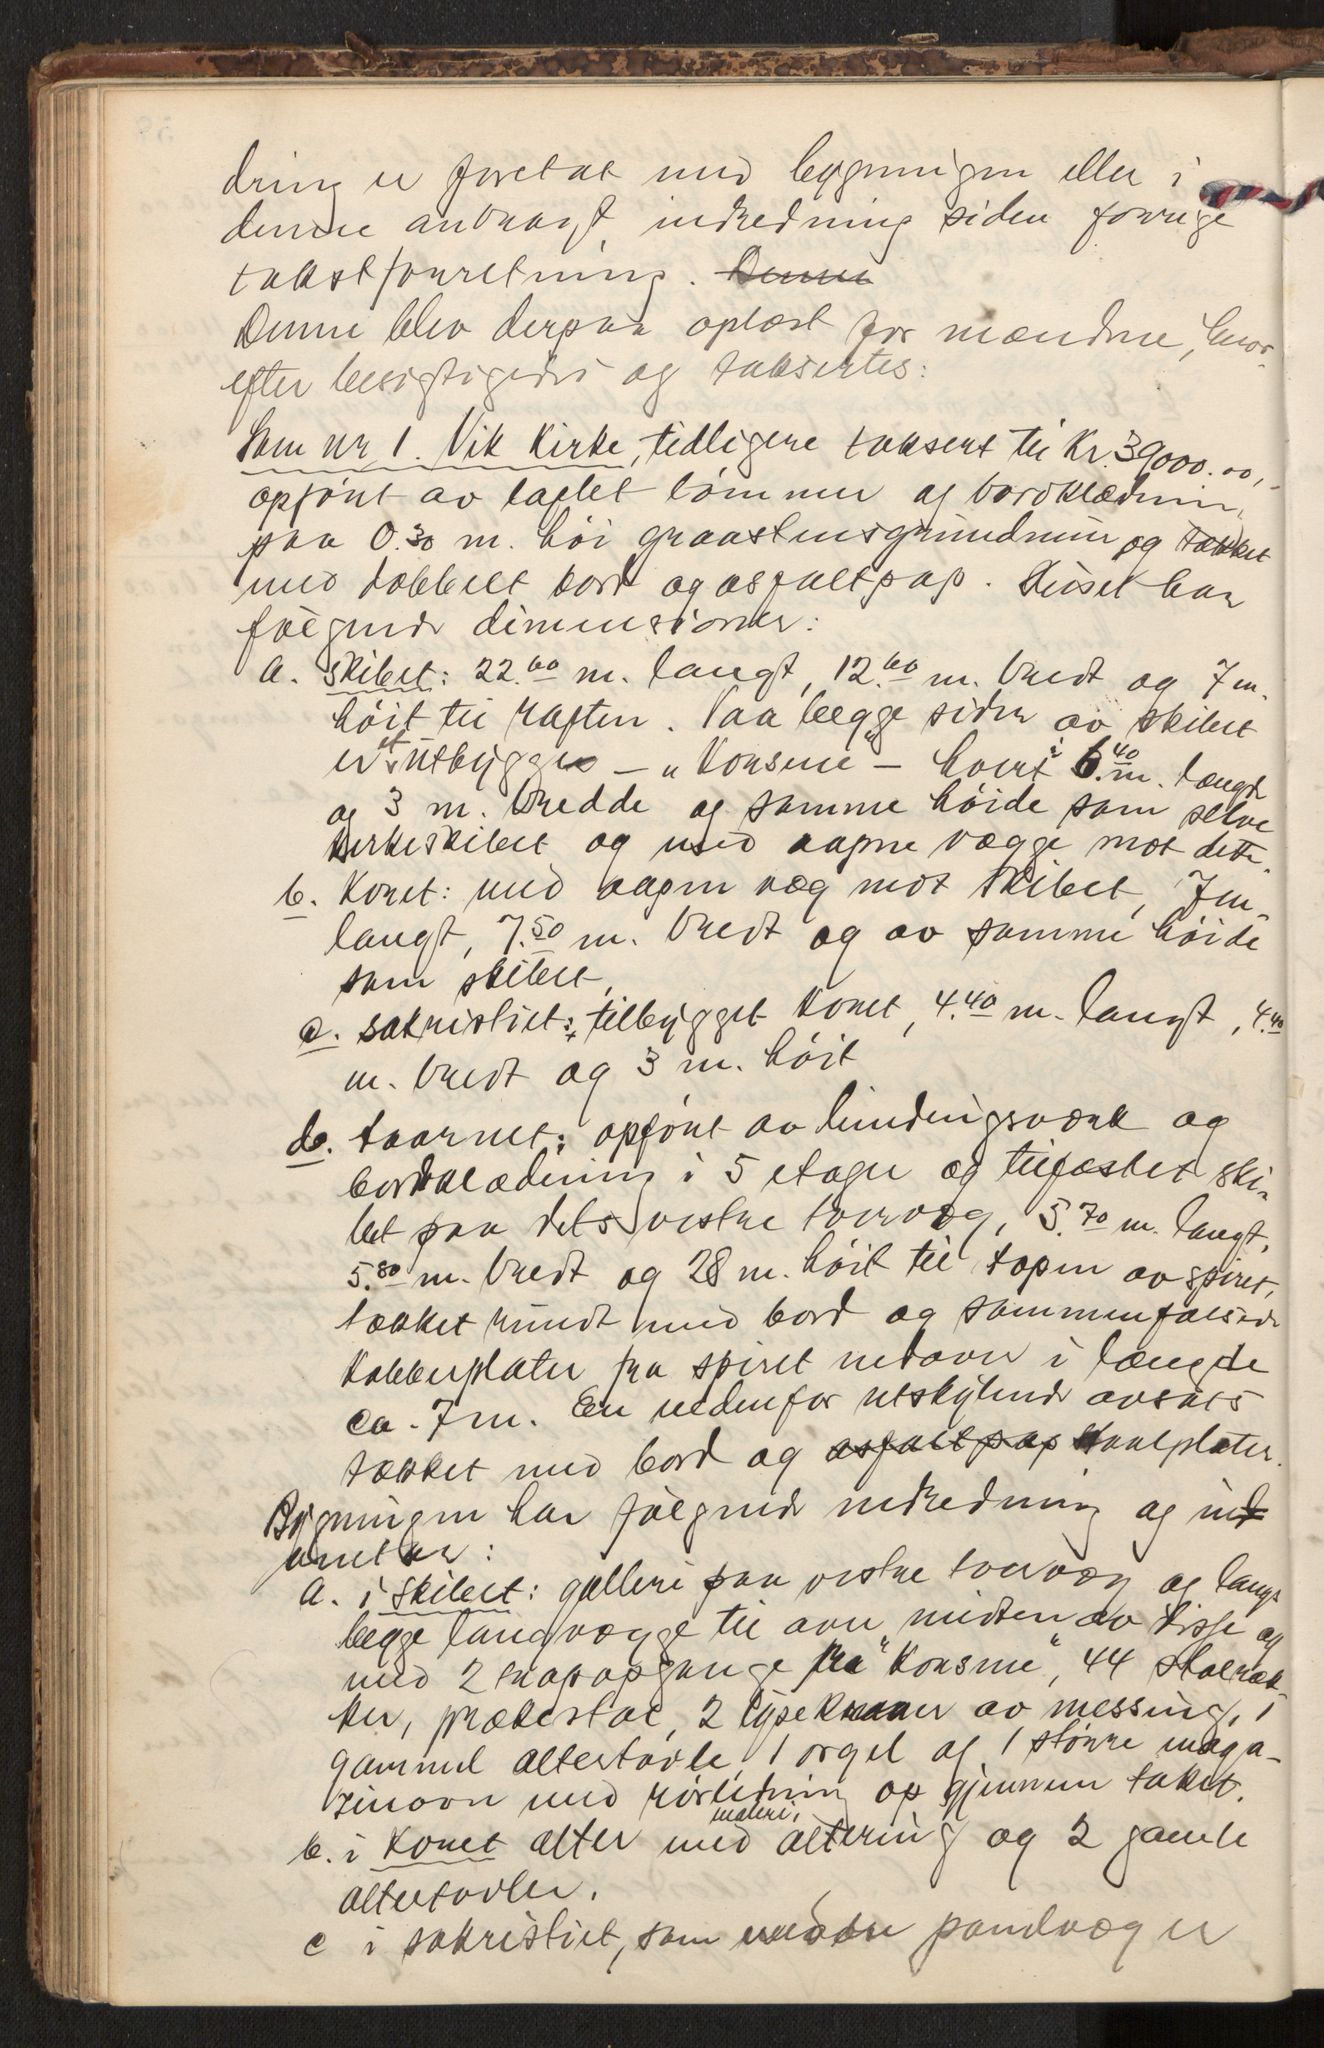 dring er foretat med bygningen eller i
denne anbragt indredning siden forrige
takstforretning. Denne
Denne blev derpaa oplæst for mændene, hvor-
efter besigtigedes og taksertes:
Som nr 1. Vik Kirke, tidligere taksert til Kr. 39000.00,-
opført av laftet tømmer og bordklædning
paa 0.30 m. høi graastensgrundmur og tækket
med dobbelt bord og asfaltpap. Huset har
følgende dimensioner:
a. Skibet: 22.60 m. langt, 12.60 m. bredt og 7 m.
høit til raften. Paa begge sider av skibet
er et utbygge – "Korsene" – hvert i 6.40 m. længde
og 3 m. bredde og samme høide som selve
kirkeskibet og med aapne vægge mot dette.
b. Koret: med aapen væg mot skibet, 7 m.
langt, 7.50 m. bredt og av samme høide
som skibet.
c. sakristiet: tilbygget koret, 4.40 m. langt, 4.40
m. bredt og 3 m. høit
d. taarnet: opført av bindingsværk og
bordklædning i 5 etager og tilfæstet ski-
bet paa dets vestre tvervæg, 5.70 m. langt,
5.80 m. bredt og 28 m. høit til toppen av spiret,
tækket rundt med bord og sammenfalsede
kobberplater fra spiret nedover i længde
ca. 7 m. En nedenfor utskytende avsats
tækket med bord og asfaltpap staalplater.
Bygningen har følgende indredning og ind
ventar:
a. i skibet: galleri paa vestre tvervæg og langs
begge langvægge til over midten av disse og
med 2 trapopgange fra "Korsene", 44 stolræk-
ker, prækestol, 2 lysekroner av messing, 1
gammel altertavle, 1 orgel og 1 større maga-
sinovn med rørledning op gjennem taket.
b. i Koret alter med maleri, altering og 2 gamle
altertavler.
c i sakristiet, som panelvæg er